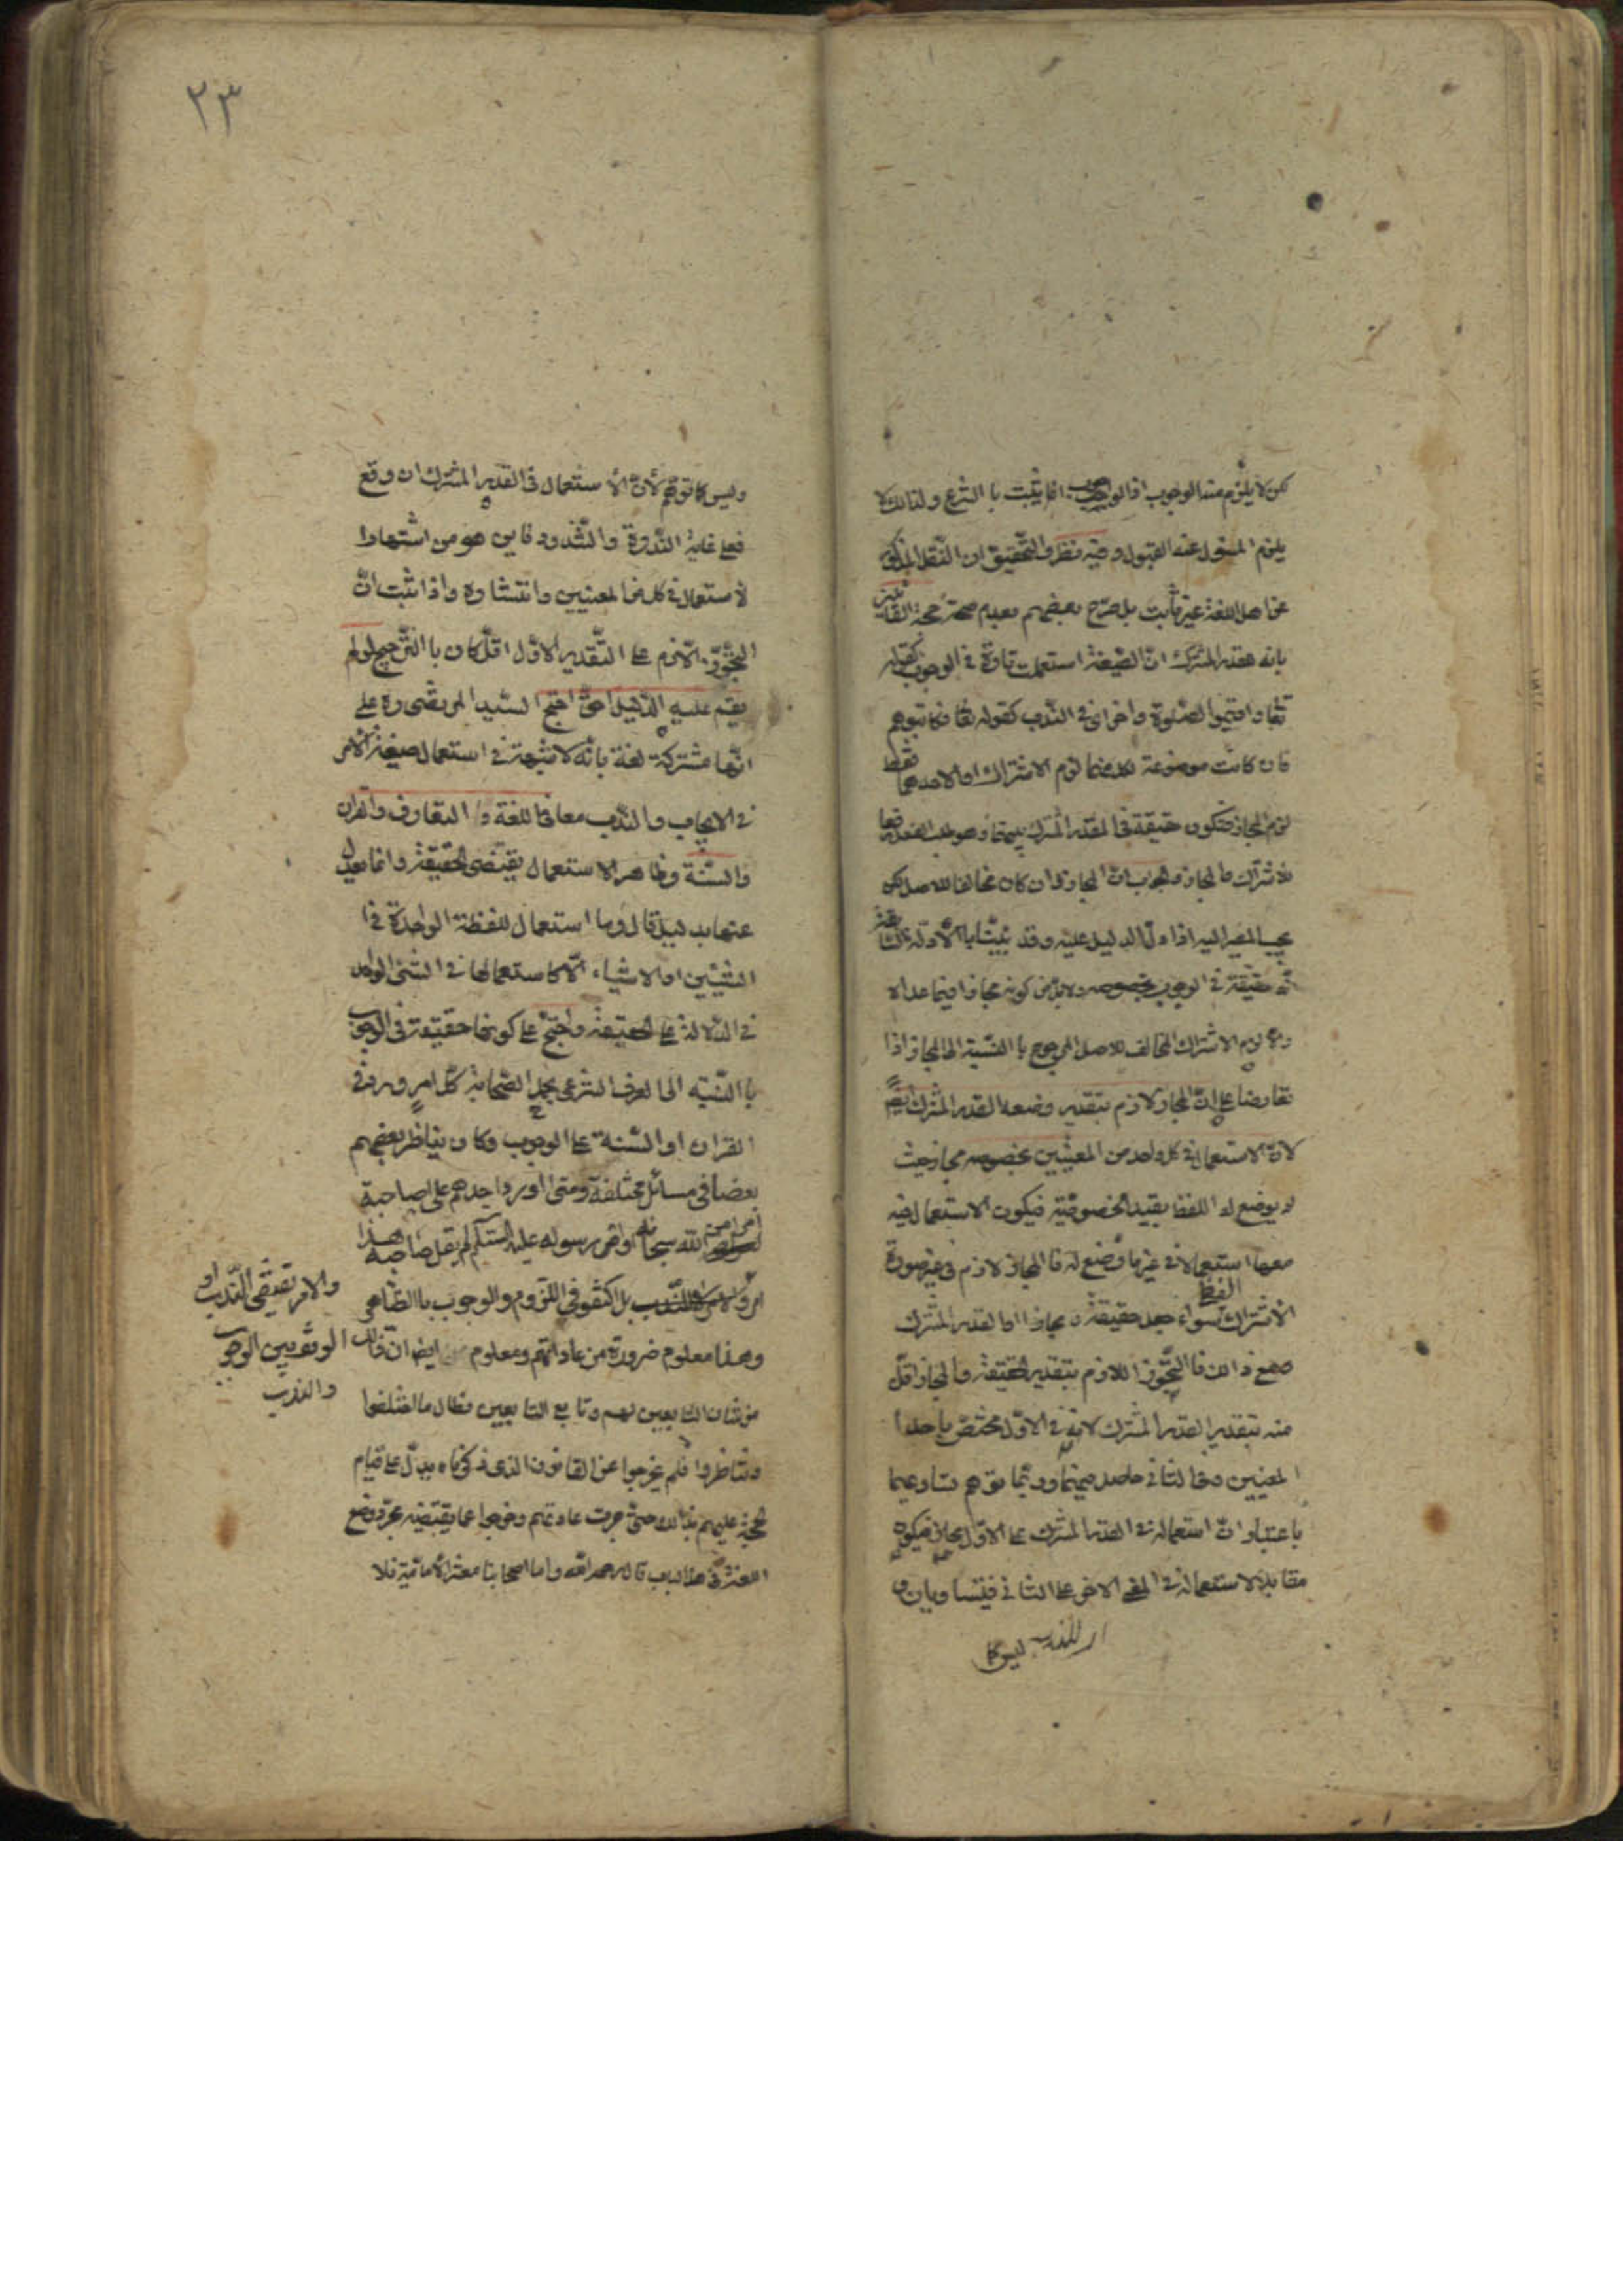 لكن لا يلزم منه الوجوب اذ الوجوب انما يثبت با الشرع ولذالك لا
يلزم المسئول عنه القبول وفيه نظر والتحقيق ان النقل المذكور
عن اهل اللغة غير ثابت بل صرح بعضهم بعدم صحته حجة القائلين
بانه للقدر المشترك ان الصيغة استعملت تارة في الوجوب كقوله
تعا اقيموا الصلوة واخرى في الندب كقوله تعا فكاتبوهم
فان كانت موضوعة لكل منهما لزم الاشتراك او لاحدهما فقط
لزم المجاز فتكون حقيقة في القدر المشترك بينهما وهو طلب الفعل دفعا
للاشتراك والمجاز والجواب ان المجاز وان كان مخالفا للاصل لكن
يجب المصير اليه اذا دل الدليل عليه وقد بينا با الادلة السابقة
انه حقيقة في الوجوب بخصوصه فلا بد من كونه مجازا فيما عداه
والا لزم الاشتراك المخالف للاصل المرجوح با النسبة الى المجاز اذا
تعارضا على ان المجاز لازم بتقدير وضعه للقدر المشترك ايضا
لان الاستعمال في كل واحد من المعنيين بخصوصه مجاز حيث
لم يوضع له اللفظ بقيد الخصوصية فيكون الاستعمال فيه
معها استعمالا في غير ما وضع له فا المجاز لازم في غير صورة
الاشتراك سواء جعل حقيقة ومجازا او للقدر المشترك
اللفظ
ومع ذالك فا التجوز اللازم بتقدير الحقيقة والمجاز اقل
منه بتقدير القدر المشترك لانه في الاول مختص باحد
المعنيين وفي الثاني حاصل فيهما وربما توهم تساويهما
باعتبار ان استعماله في القدر المشترك على الاول مجاز فيكون
مقابلا لاستعماله في المعنى الاخر على الثاني فيتساويان و
ليس كا
٢٣
وليس كما توهم لان الاستعمال في القدر المشترك ان وقع
فعلى غاية الندرة والشذوذ فاين هو من اشتهار ا
لاستعمال في كل من المعنيين وانتشاره واذا ثبت ان
التجوز اللازم على التقدير الاول اقل كان با الترجيح لو لم
يقم عليه الدليل احق احتج السيد المرتضى ره على
انها مشتركة لغة بانه لا شبهة في استعمال صيغة الامر
في الايجاب والندب معا في اللغة والتعارف والقران
والسنة وظاهر الاستعمال يقتضي الحقيقة وانما يعدل
عنها بدليل قال وما استعمال اللفظة الواحدة في ا
الشيئين او الاشياء الا كاستعمالها في الشئ الواحد
في الدلالة على الحقيقة واحتج على كونها حقيقة في الوجوب
با النسبة الى العرف الشرعي بحمل الصحابة كل امر ورد في
القران او السنة على الوجوب وكان يناظر بعضهم
بعضا في مسائل مختلفة ومتى اورد احدهم على صاحبه
امرا من الله سبحانه او من رسوله عليه السلم لم يقل صاحبه هذا
امر والامر للندب بل اكتفو في اللزوم والوجوب با الظاهر
وهذا معلوم ضرورة من عاداتهم ومعلوم ايضا ان ذالك
من شان التابعين لهم وتابع التابعين فطال ما اختلفوا
وتناظروا فلم يخرجوا عن القانون الذى ذكرناه يدل على قيام
الحجة عليهم بذالك حتى جرت عادتهم وخرجوا عما يقتضيه مجرد وضع
اللغة في هذا الباب قال رحمه الله واما اصحابنا معشر الامامية فلا
والامر يقتضى الندب او
الوقف بين الوجوب
والندب